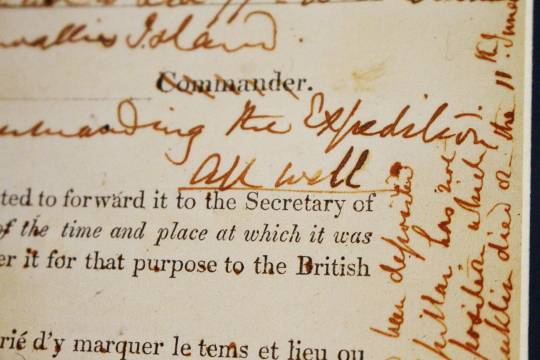 wallis Island.
Commander.
mmanding the Expedition.
All well
ted to forward it to the Secretary of
of the time and place at which it was
er it for that purpose to the British
rié d'y marquer le tems et lieu ou
been deposited
pillar has been
position which
anklin died on the 11th June